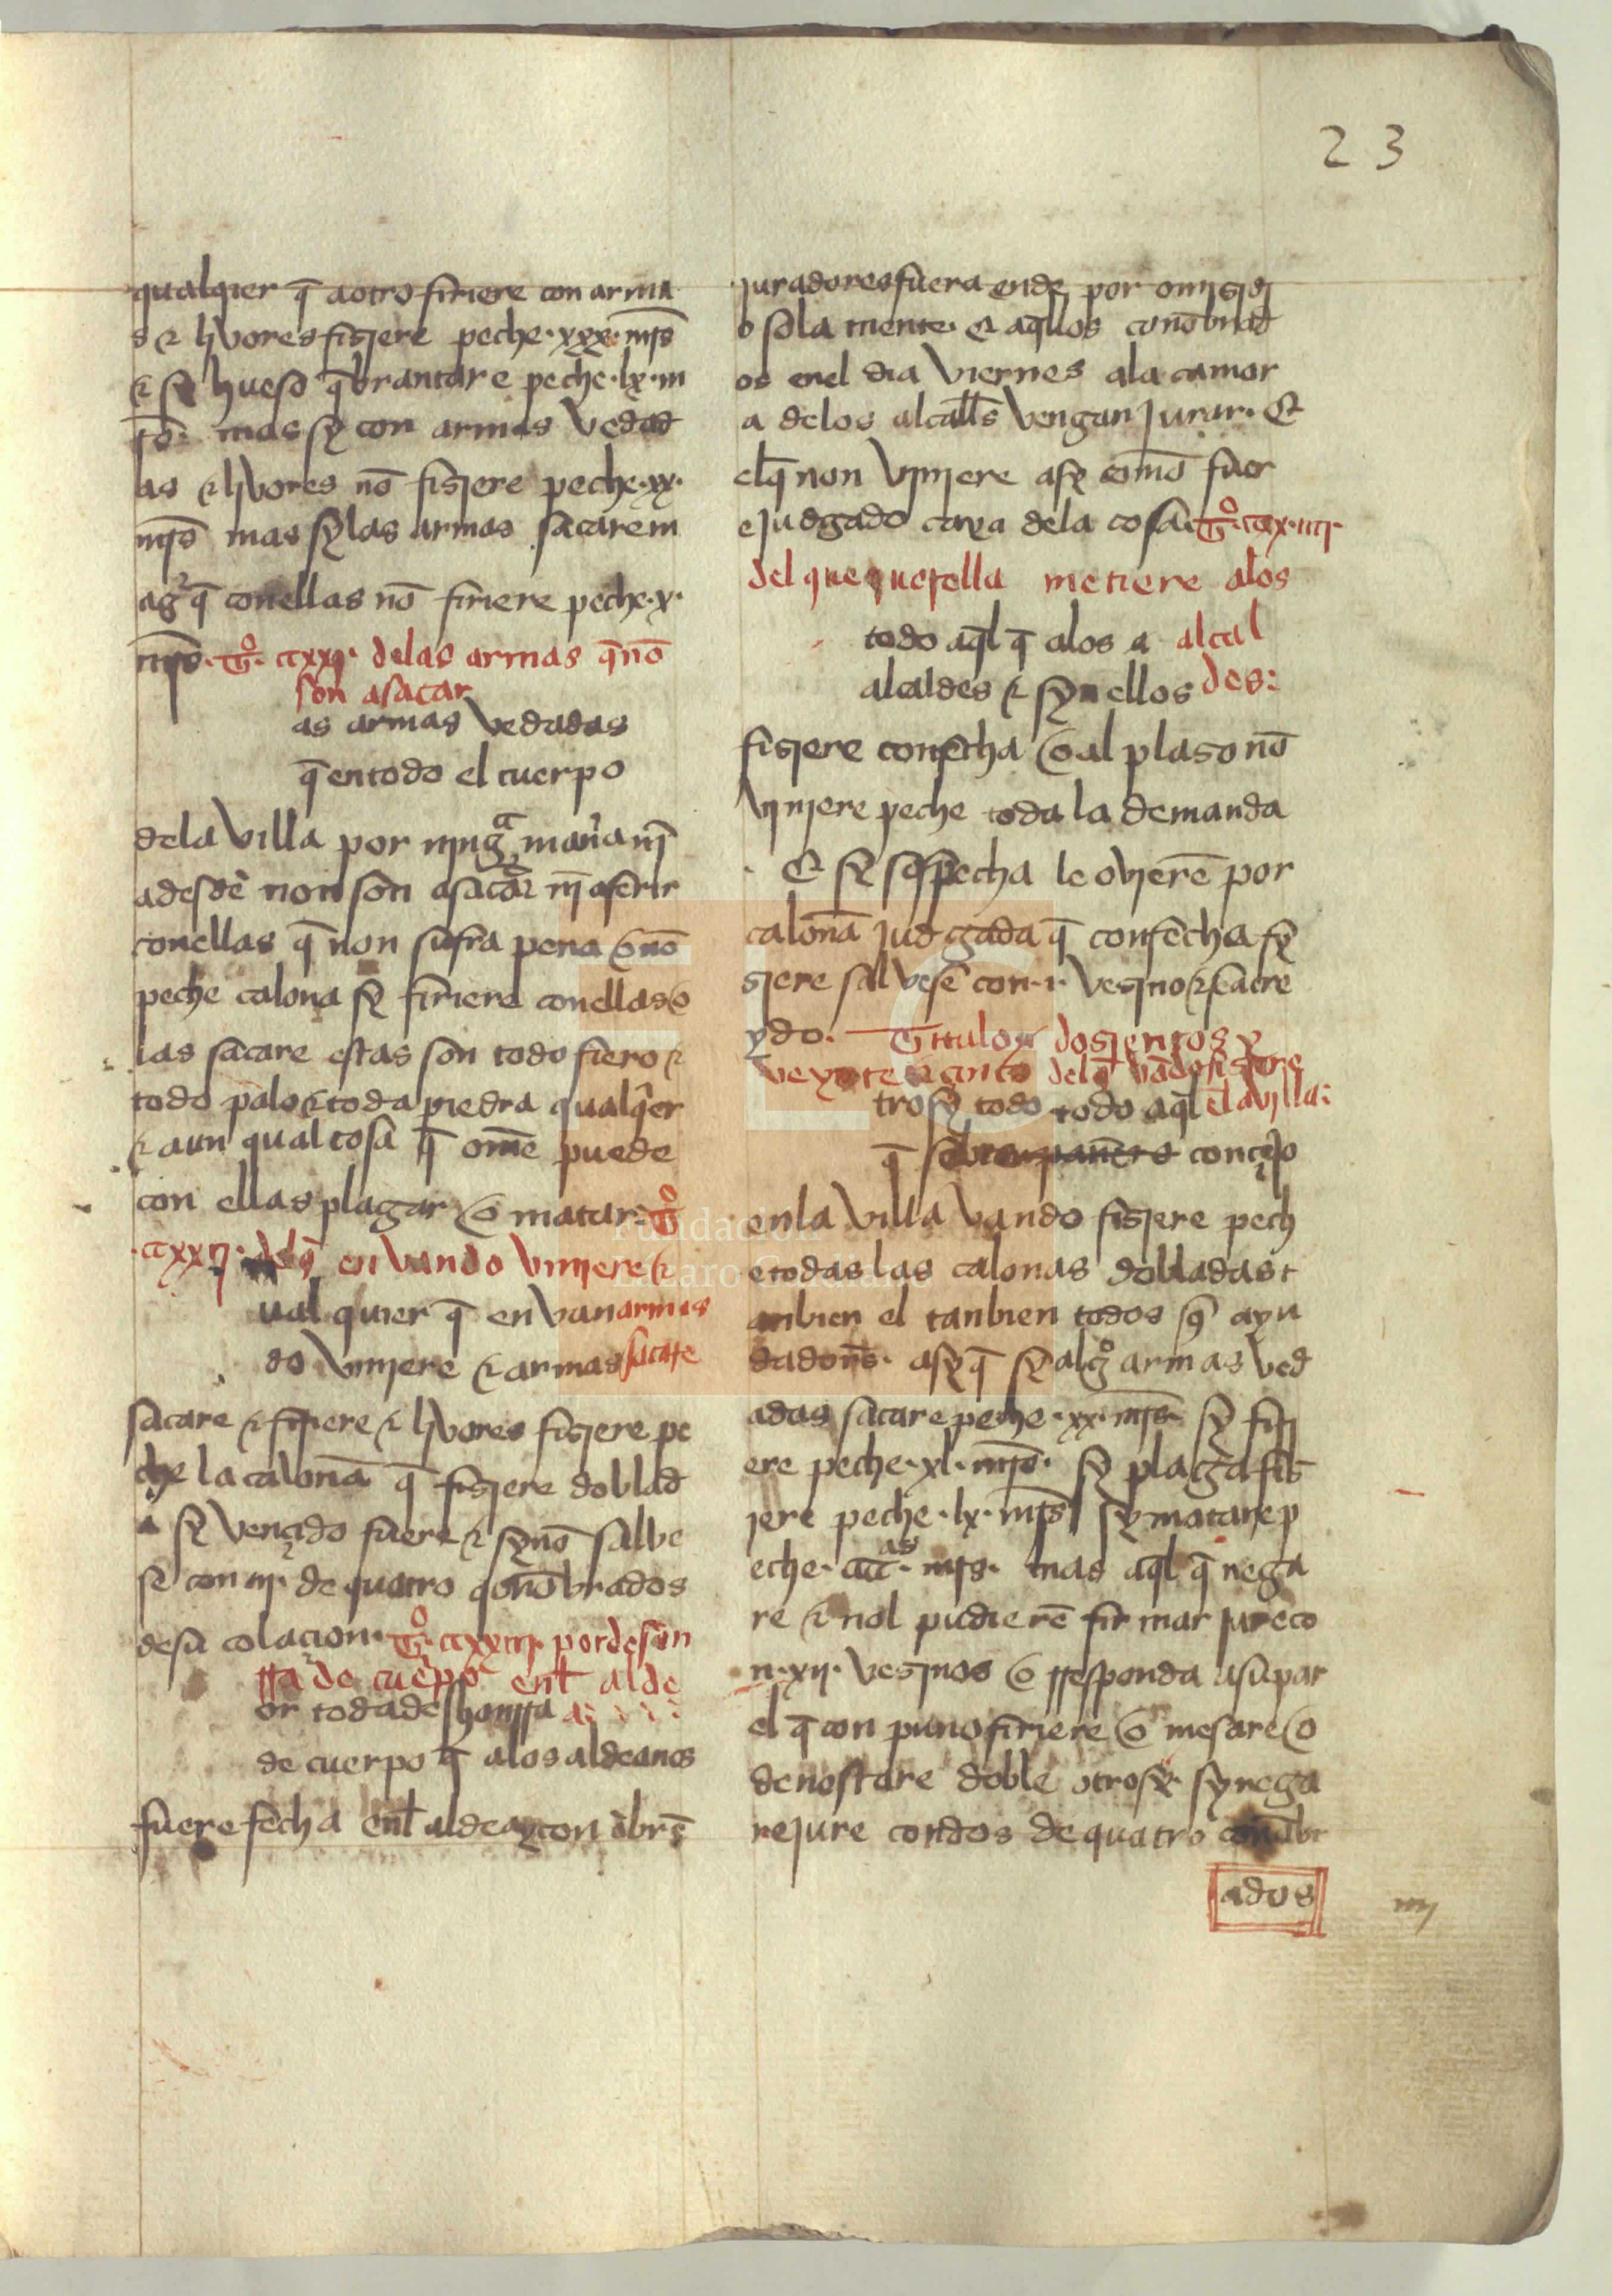 23
qualqier q̄ a otro firiere con arma
s ⁊ livores fisiere peche·xxx·mr̄s
⁊ sy hueso q̄brantare peche·lx·m
r̄s· mas sy con armas vedad
as ⁊ livores nō fisiere peche·xx·
mr̄s mas sy las armas sacare m
ag̃ q̄ conellas nō firiere peche·x·
mr̄s· T̊· ccxxj· delas armas q̄ nō
son asacar
as armas vedadas
q̄ entodo el cuerpo
dela villa por ningᵃ man̄a nj̄
adesde non son asacar nj̄ aferir
conellas q̄ non sufra pena o nō
peche calona sy firiere conellas o
las sacare estas son todo fierro ⁊
todo palo ⁊ toda piedra qualq̄er
⁊ aun qual cosa q̄ om̄e puede
con ellas plagar o matar· T̊
·ccxxij· delq̄ en vando viniere ⁊
ual quier q̄ en van armas
do viniere ⁊ armas sacare
sacare ⁊ firiere ⁊ livores fisiere pe
che la calon̄a q̄ fisiere doblad
a sy vençido fuere ⁊ sy nō salve
se con iij· de quatro qonōbrados
desu colaçion· T̊· ccxxiij· por deson
rra de cuerpo enl aldea
or toda deshonrra
de cuerpo q̄ alos aldeanos
fuere fecha enl aldea con ōbrs̄
juradores fuera ende por omisidi
o sola mente· Et aq̄llos conōbrad
os enel dia viernes ala camar
a delos alcalls̄ vengan jurar· Et
elq̄ non viniere asy comō fuer
e judgado caya dela cosa· T̊·ccxxiiij·
del que querella metiere alos
todo aq̄l q̄ alos a alcal
alcaldes ⁊ syn ellos des:
fisiere confecha o al plaso nō
viniere peche toda la demanda
· Et sy sospecha le ovierē por
calon̄a judgada q̄ confecha fy
siere salvese con·i· vesino ⁊ sea cre
ydo. Titulo dosientos y
veynte ⁊ çinco delq̄ vādo fisiere
trosy todo todo aq̄l ēla villa:
q̄ sobre conpan̄ero conçejo
enla villa vando fisiere pech
e todas las calonas dobladas t
anbien el tanbien todos sꝰ ayu
dadors̄· asy q̄ sy algº armas ved
adas sacare peche·xx·mr̄s· sy firi
ere peche·xl·mr̄s· sy plaga fis
iere peche·lx·mr̄s sy matare p
eche·ccᵃˢ·mr̄s· mas aq̄l q̄ nega
re ⁊ nol pudierē firmar jure co
n·xij·vesinos o rresponda asu par
el q̄ con puno firiere o mesare o
denostare doble otrosy sy nega
re jure con dos de quatro conōbr
ados